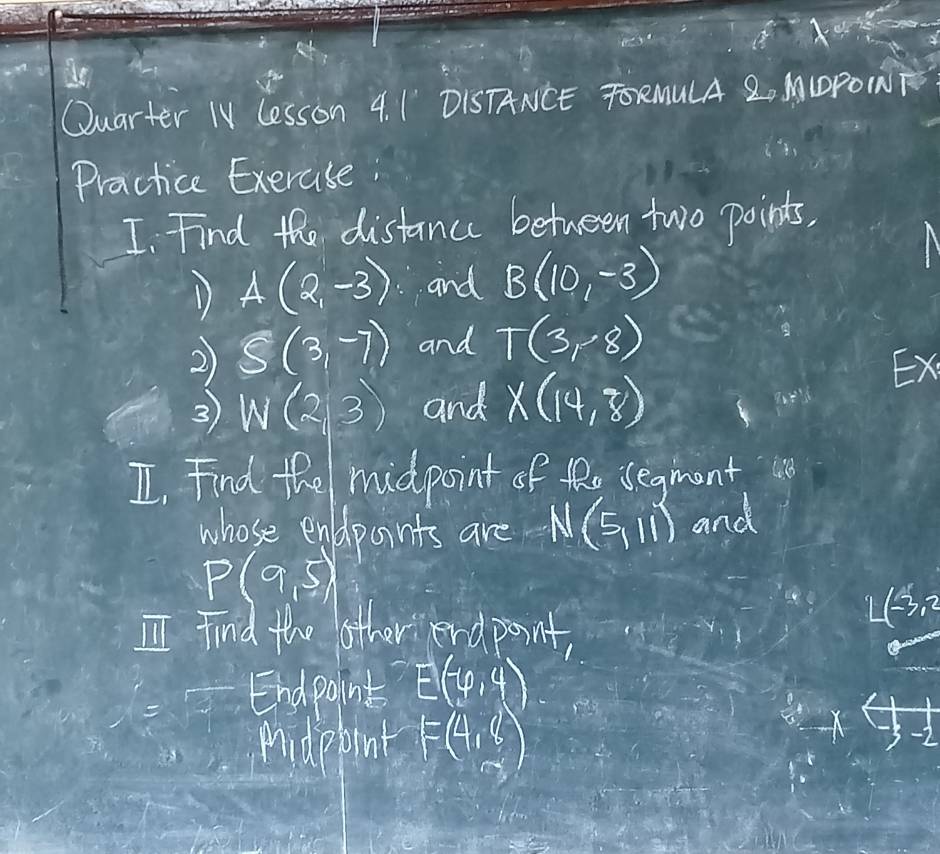 Quarter IV Lesson 4.1 DISTANCE FORMULA & MIDPOINT
Practice Exercise:
I. Find the distance between two points.
1) A(2,-3) and B(10,-3)
2) S(3,-7) and T(3,-8)
3) W(2,3) and X(14,8)
II. Find the midpoint of the segment
whose endpoints are N(5,11) and
P(9,5)
III Find the other endpoint,
Endpoint E(-6,4)
Midpoint F(4,8)
Ex:
L(-3,2
X
-3 -2